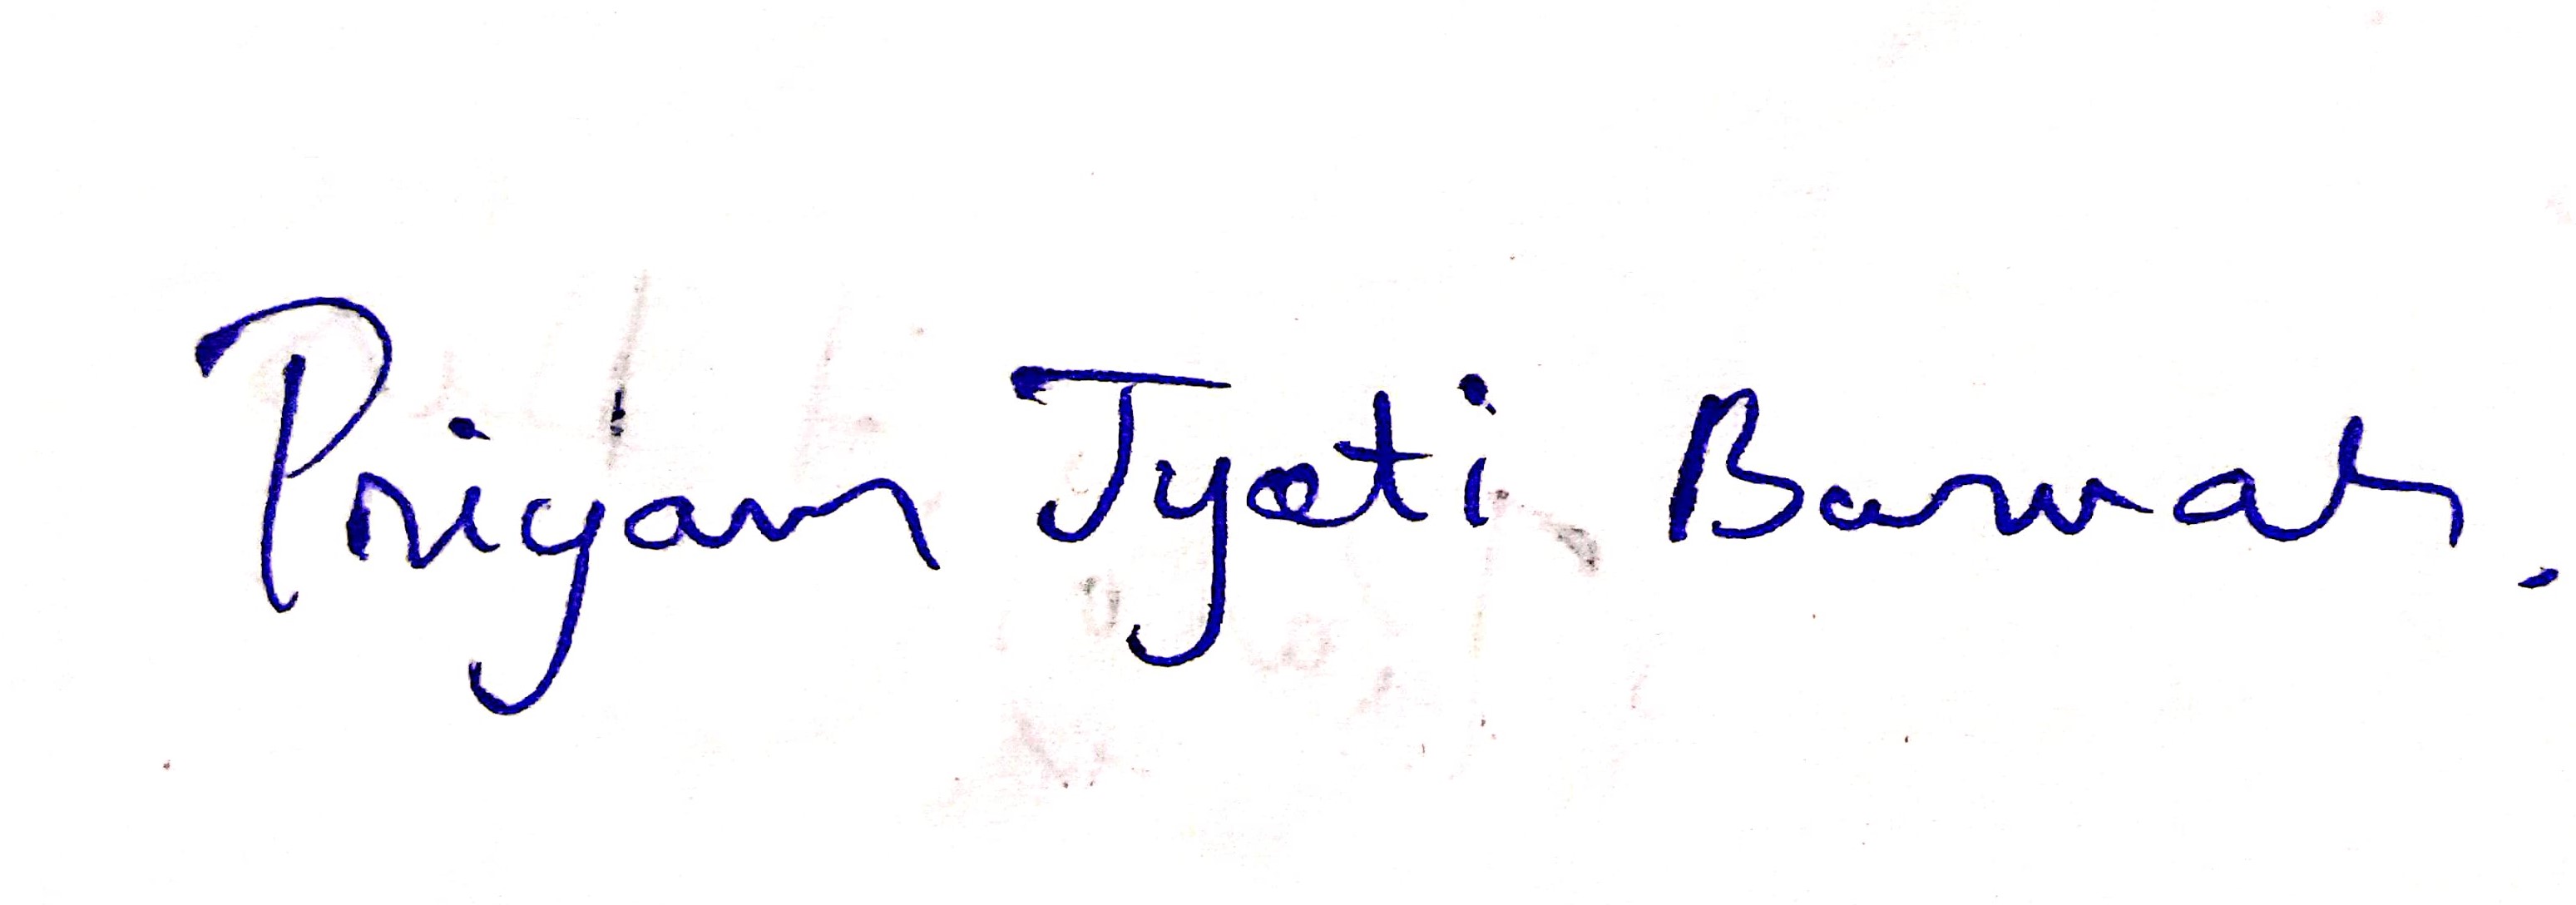 Priyam Jyoti Barwah.